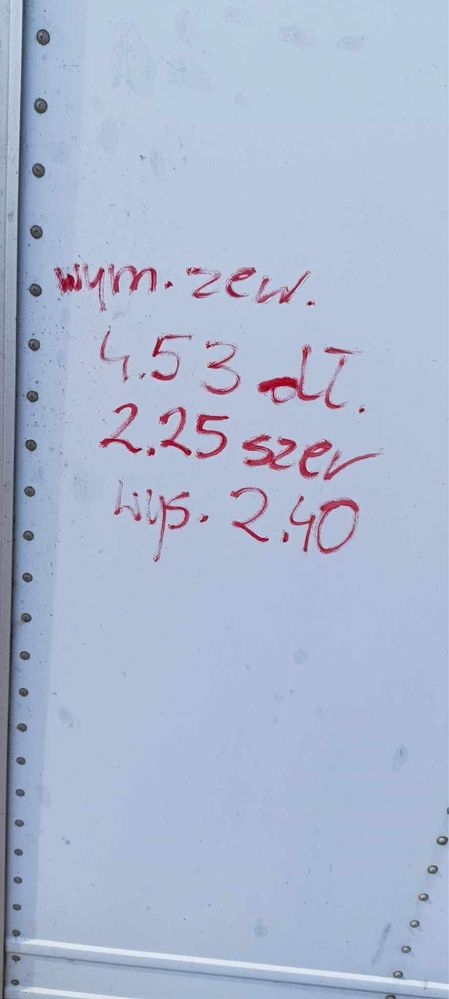 wym. zew.
4.53 dł.
2.25 szer
wys. 2.40